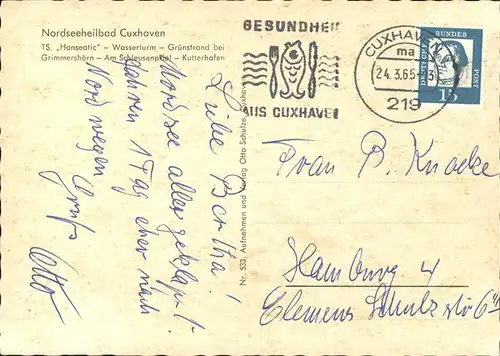 Nordseeheilbad Cuxhaven
TS. „Hanseatic" – Wasserturm – Grünstrand bei
Grimmershörn – Am Schleusenpriel – Kutterhafen
GESUNDHEIT
AUS CUXHAVEN
CUXHAVEN
ma
24.3.65
219
BUNDES
POST
DEUTSCHE
15
Liebe Bertha!
Nordsee alles geklappt
fahren 1 Tag eher nach
Norwegen
Gruß
Otto
Nr. 533, Aufnahmen und Verlag Otto Schulze, Cuxhaven
Frau B. Knacke
Hamburg 4
Clemens Schultz str 6